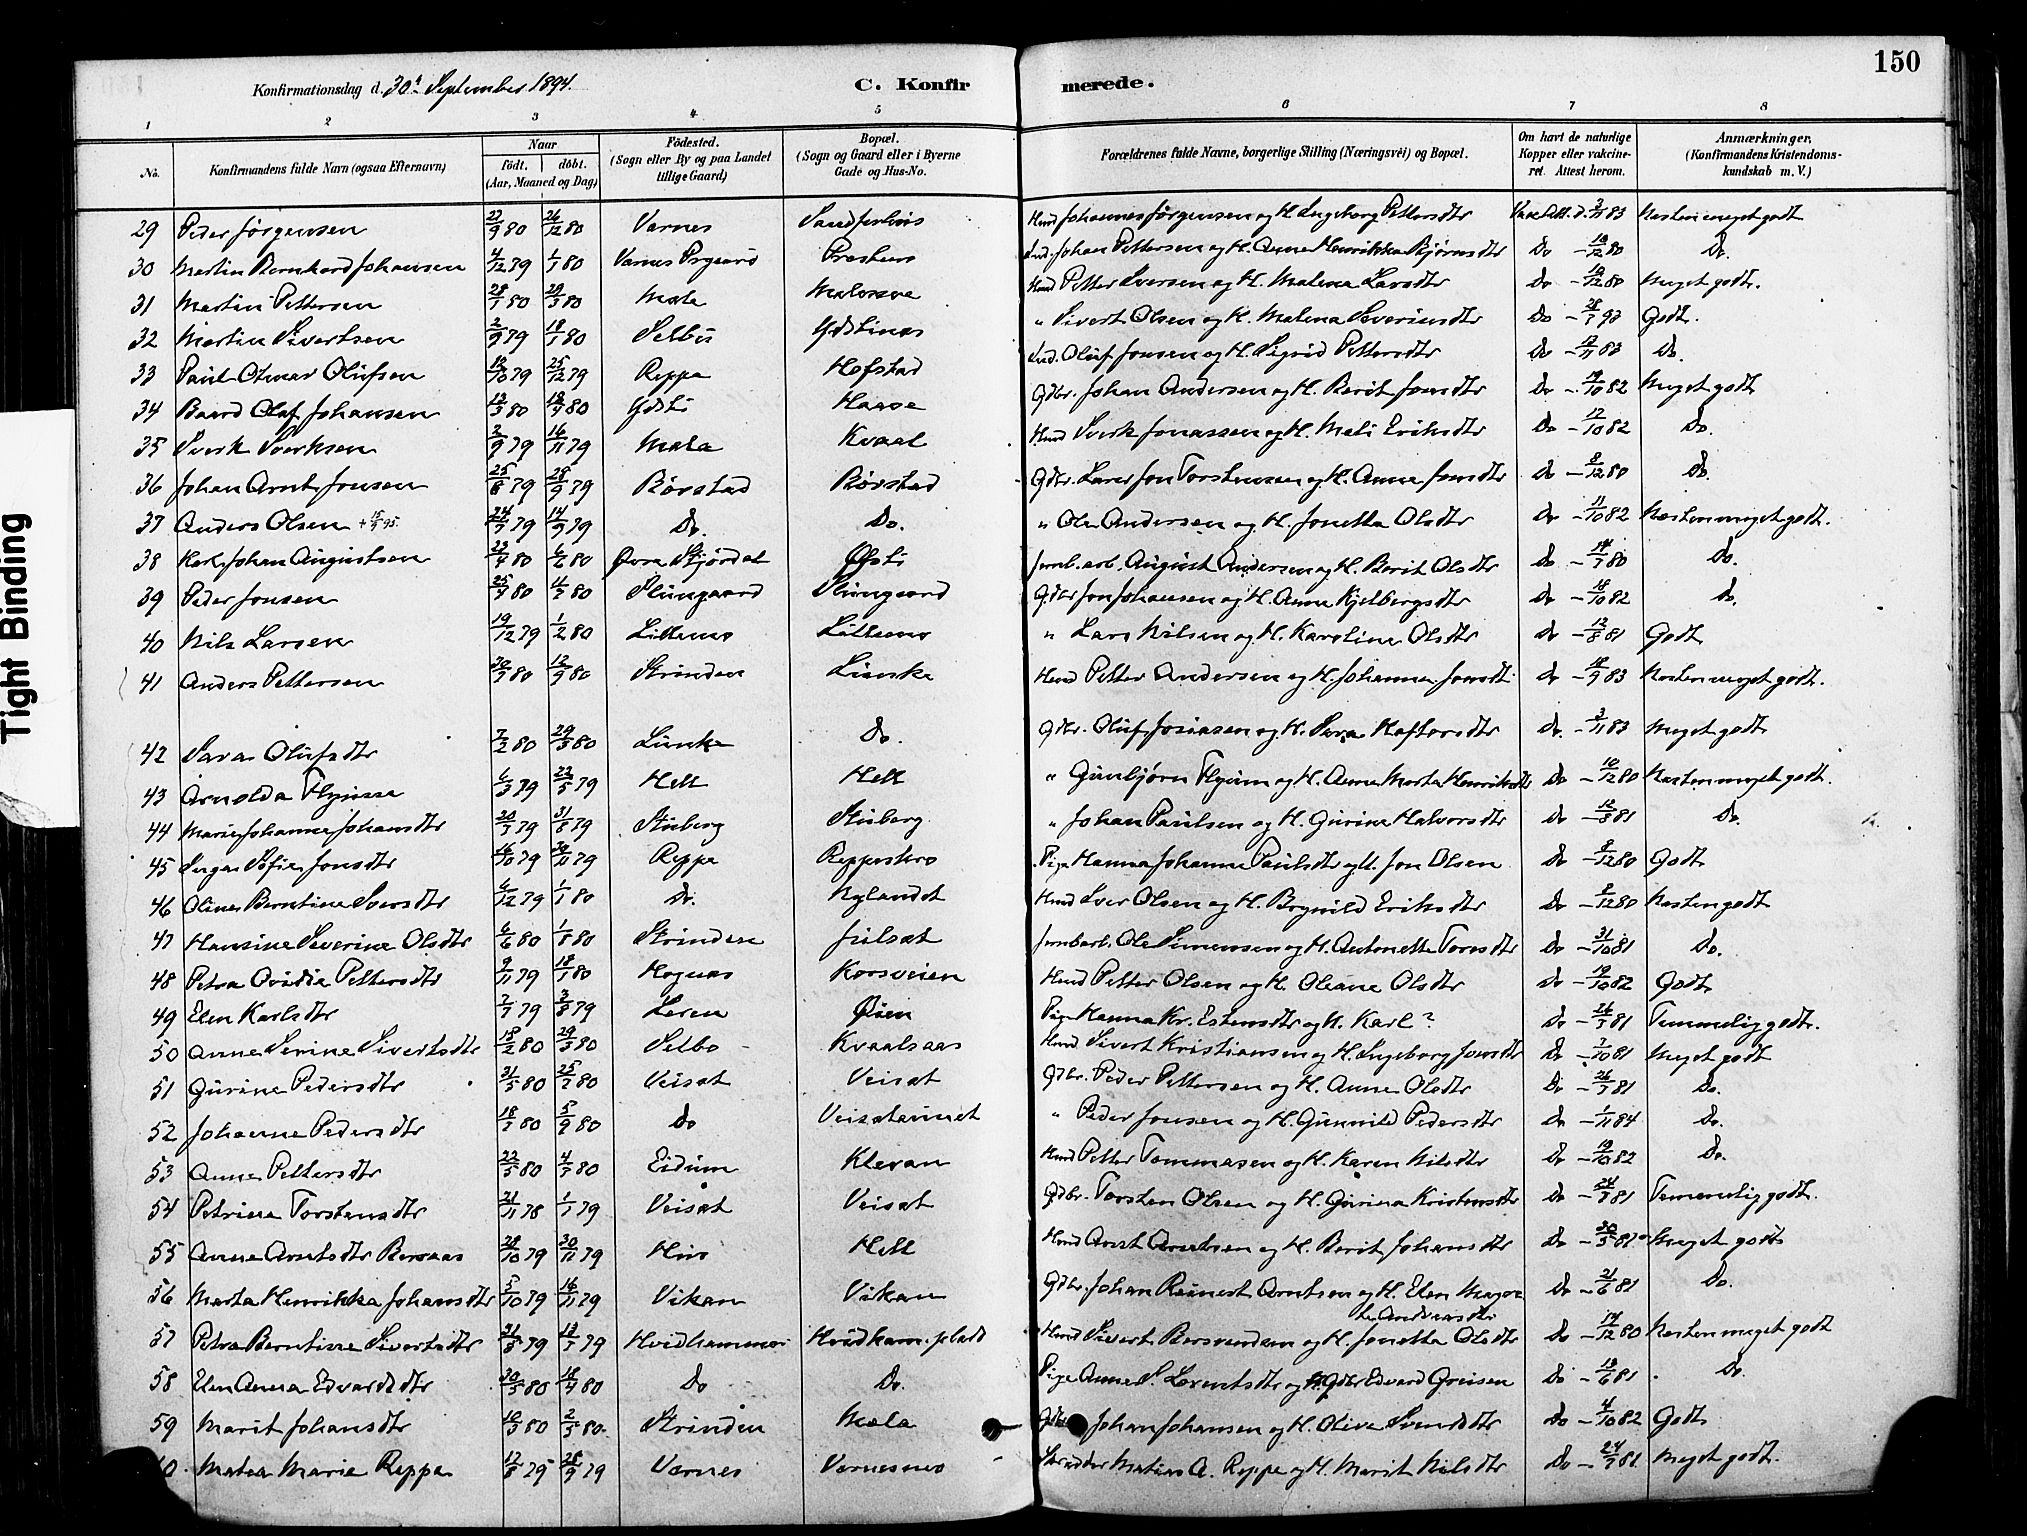 150
Konfirmationsdag d. 30te September 1894.
C. Konfirmerede.
1 2 3 4 5 6 7 8
No. Konfirmandens fulde Navn (ogsaa Efternavn) Naar födt. döbt. (Aar, Maaned og Dag) Födested. (Sogn eller By og paa Landet tillige Gaard) Bopæl. (Sogn og Gaard eller i Byerne Gade og Hus-No. Forældrenes fulde Navne, borgerlige Stilling (Næringsvei) og Bopæl. Om havt de naturlige Kopper eller vakcineret. Attest herom. Anmærkninger, (Konfirmandens Kristendomskundskab m. V.)
Tight Binding
29 Peder Jørgensen 22/9 80 26/12 80 Værnes Johannes Jørgensen og H. Ingeborg Pettersdtr 3/11 83 Næsten meget godt
30 Martin Bernhard Johansen 4/12 79 1/1 80 Værnes Prgaard Ind. Johan Pettersen og H. Anne Henrikka Bjørnsdtr Do - 12/80 Do.
31 Martin Pettersen 28/1 80 29/3 80 Mæla Hmd Petter Iversen og H. Malena Larsdtr Do - 12/80 Meget godt.
32 Martin Sivertsen 2/9 79 18/1 80 Selbu " Sivert Olsen og H. Malena Severinsdtr Do Godt.
33 Paul Otmar Olufsen 12/10 79 25/12 79 Reppe Hofstad Ind. Oluf Jonsen og H. Sigrid Pettersdtr Do - 11 83 Do.
34 Baard Olaf Johansen 13/3 80 18/9 80 Haave Gdbr. Johan Andersen og H. Berit Jonsdtr Do - 10 82 Meget godt
35 Sverk Sverksen 2/9 79 16/11 79 Mæla Kvaal Hmd Sverk Jonassen og H. Mali Eriksdtr Do - 17/10 82 Do.
36 Johan Arnt Jonsen 25/8 79 28/9 79 Rørstad Rørstad Gdbr. Lars Jon Torstensen og H. Anne Jonsdtr Do - 8/12 80 Do.
37 Anders Olsen + 15/9 95. 24/7 79 14/9 79 Do. Do. " Ole Andersen og H. Jonetta Olsdtr Do - 11/10 82 Næsten meget godt.
38 Karl Johan Augustsen 23/4 80 6/6 80 Øvre Stjørdal Øfsti Jernb.arb. August Andersen og H. Berit Olsdtr Do - 80 Do.
39 Peder Jonsen 25/4 80 80 Slungaard Slungaard Gdbr Jon Johansen og H. Anne Kjelbergsdtr Do - 18/10 82 Do.
40 Nils Larsen 19/12 79 1/2 80 Littemo Littemo " Lars Nilsen og H. Karoline Olsdtr Do - 12/8 81 Godt
41 Anders Pettersen 30/7 80 12/9 80 Strinden Lænke Hmd Petter Andersen og H. Johanna Jonsdtr Do - 9 83 Næsten meget godt.
42 Sara Olufsdtr 7/2 80 29/3 80 Lænke Do. Gdbr. Oluf Josiasen og H. Sara Haftorsdtr Do. - 3/11 83 Meget godt
43 Arnolda Flynum 6/3 79 22/5 79 Hell Hell " Gunbjørn Flynum og H. Anne Marta Henriksdtr Do - 10/12 80 Næsten meget godt.
44 Marie Johanna Johansdtr 20/7 79 31/8 79 Stuberg Stuberg " Johan Paulsen og H. Gurine Halvorsdtr Do - 12/8 81 Do.
45 Inger Sofie Jonsdtr 16/10 79 30/11 79 Reppe Pige Hanna Johanna Paulsdtr og U. Jon Olsen Do - 8/12 80 Godt
46 Oline Berntine Iversdtr 6/12 79 1/1 80 Do. Nylandet Hmd Iver Olsen og H. Brynild Eriksdtr Do - 8/12 80 Næsten godt
47 Hansine Severine Olsdtr 6/6 80 1/8 80 Strinden Julset Jernbarb. Ole Simensen og H. Antonette Toresdtr Do - 31/10 81 Do.
48 Petra Ovidia Pettersdtr 9/11 79 18/1 80 Hognes Korsveien Hmd Petter Olsen og H. Oleane Olsdtr Do - 19/10 82 Godt
49 Elen Karlsdtr 7/7 79 3/8 79 Leren Øien Pige Hanna Kr. Estensdtr og U. Karl ? Do - 26/7 81 Temmelig godt.
50 Anne Serine Sivertsdtr 18/2 80 29/3 80 Selbo Kvaalsaas Hmd Sivert Kristiansen og H. Ingeborg Jonsdtr Do - 7/10 81 Meget godt
51 Gurine Pedersdtr 31/5 80 25/7 80 Veiset Veiset Gdbr. Peder Pettersen og H. Anne Olsdtr Do - 26/7 81 Do.
52 Johanna Pedersdtr 18/7 80 5/9 80 Do " Peder Jonsen og H. Gunnild Pedersdtr Do - 1/11 84 Do.
53 Anne Pettersdtr 22/5 80 4/7 80 Eidum Klevan Hmd Petter Tommasen og H. Karen Nilsdtr Do - 19/10 82 Do.
54 Petrine Torstensdtr 21/11 78 1/1 79 Veiset Veiset Gdbr. Torsten Olsen og H. Gurina Kristensdtr Do - 24/7 81 Temmelig godt.
55 Anne Arntsdtr Bersaas 28/10 79 30/11 79 Hell Hmd Arnt Arntsen og H. Berit Johansdtr Do - 30/5 81 Meget godt
56 Marta Henrikka Johansdtr 5/10 79 16/11 79 Vikan Vikan Gdbr. Johan Reinert Arntsen og H. Elen Margrethe Andreasdtr Do - 21/6 81 Do.
57 Petra Berntine Sivertsdtr 31/5 79 13/7 79 Hvidhammer Hvidham. plads Hmd Sivert Bersvendsen og H. Jonetta Olsdtr Do - 14/12 80 Næsten meget godt
58 Elen Anna Edvardsdtr 30/3 80 18/4 80 Do Do. Pige Anne S. Lorentsdtr og Gdbr Edvard Do - 13/6 81 Do.
59 Marit Johansdtr 10/3 80 2/5 80. Strinden Mæla Johan Johansen og H. Olive Svendsdtr Do - 4/10 82 Godt
60 Matea Marie Reppe 17/8 79 28/9 79 Værnes Værnesmo Skrædder Matias A. Reppe og H. Marit Nilsdtr Do - 24/7 81. Meget godt.